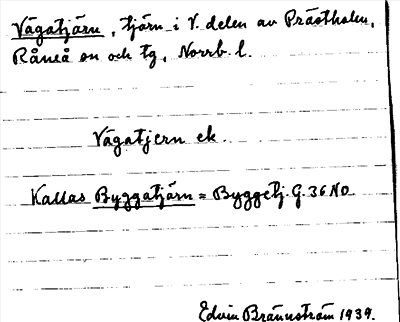 Vågatjärn, tjärn i V. delen av Prästholm,
Råneå sn och tg, Norrb. l.
Vågatjern ek.
Kallas Byggatjärn = Byggetj. G. 36 NO
Edvin Brännström 1939.